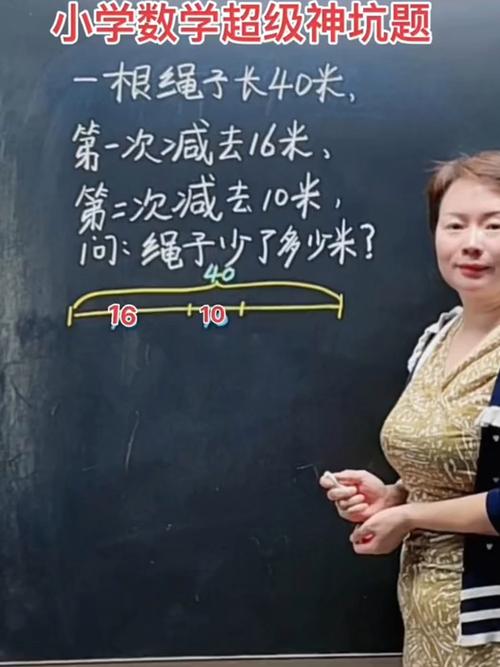 小学数学超级神坑题
一根绳子长40米,
第一次减去16米、
第二次减去10米,
问:绳子少了多少米?
40
16 10